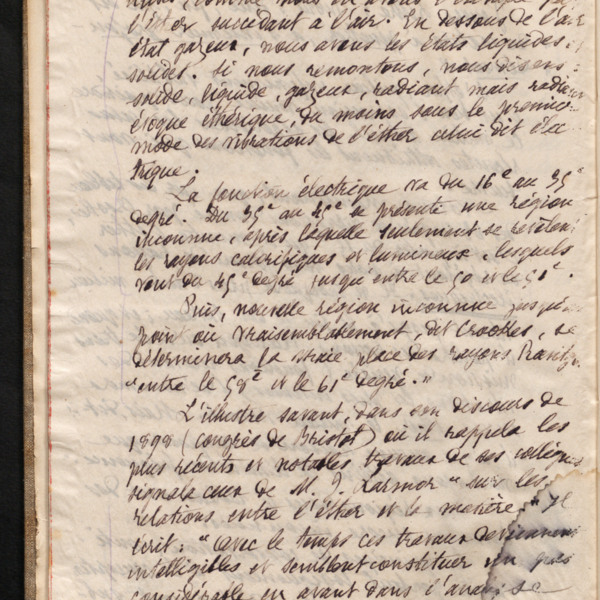 l'éther succédant à l'air. En dessous de l'air
état gazeux, nous avons les états liquides,
solides. Si nous remontons, nous disons :
solide, liquide, gazeux, radiant mais radiant
évoque éthérique, du moins sous le premier
mode des vibrations de l'éther celui dit élec
trique.
La fonction électrique va du 16e au 35e
degré. Du 35e au 45e se présente une région
inconnue, après laquelle seulement se révèlent
les rayons calorifiques et lumineux, lesquels
vont du 45e degré jusqu'entre le 50 et le 51e.
Puis, nouvelle région inconnue jusqu'au
point où vraisemblablement, dit Crookes, se
déterminera la vraie place des rayons Rœntgen
"entre le 58e et le 61e degré."
L'illustre savant, dans son discours de
1898 (congrès de Bristol) où il rappela les
plus récents et notables travaux de ses collègues
signala ceux de M. J. Larmor "sur les
relations entre l'éther et la matière." Il
écrit : "avec le temps ces travaux deviennent
intelligibles et semblent constituer un pas
considérable en avant dans l'analyse